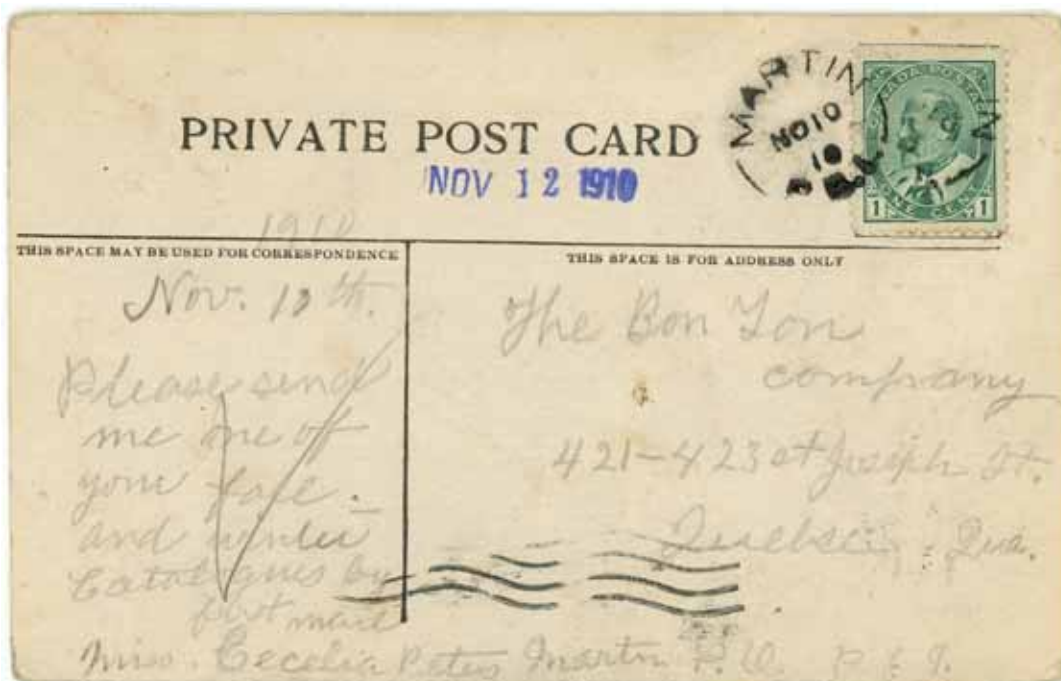 PRIVATE POST CARD
MARTIN
NO 10
10
NOV 12 1910
CANADA POSTAGE
ONE CENT
1 1
1910
THIS SPACE MAY BE USED FOR CORRESPONDENCE
THIS SPACE IS FOR ADDRESS ONLY
Nov. 10th.
Please send
me one of
your fall
and winter
by
first mail
Miss. Cecelia Peters Martin P.O. P.E.I.
The Bon Ton
company
421-423 st Joseph St.
Quebec. Que.